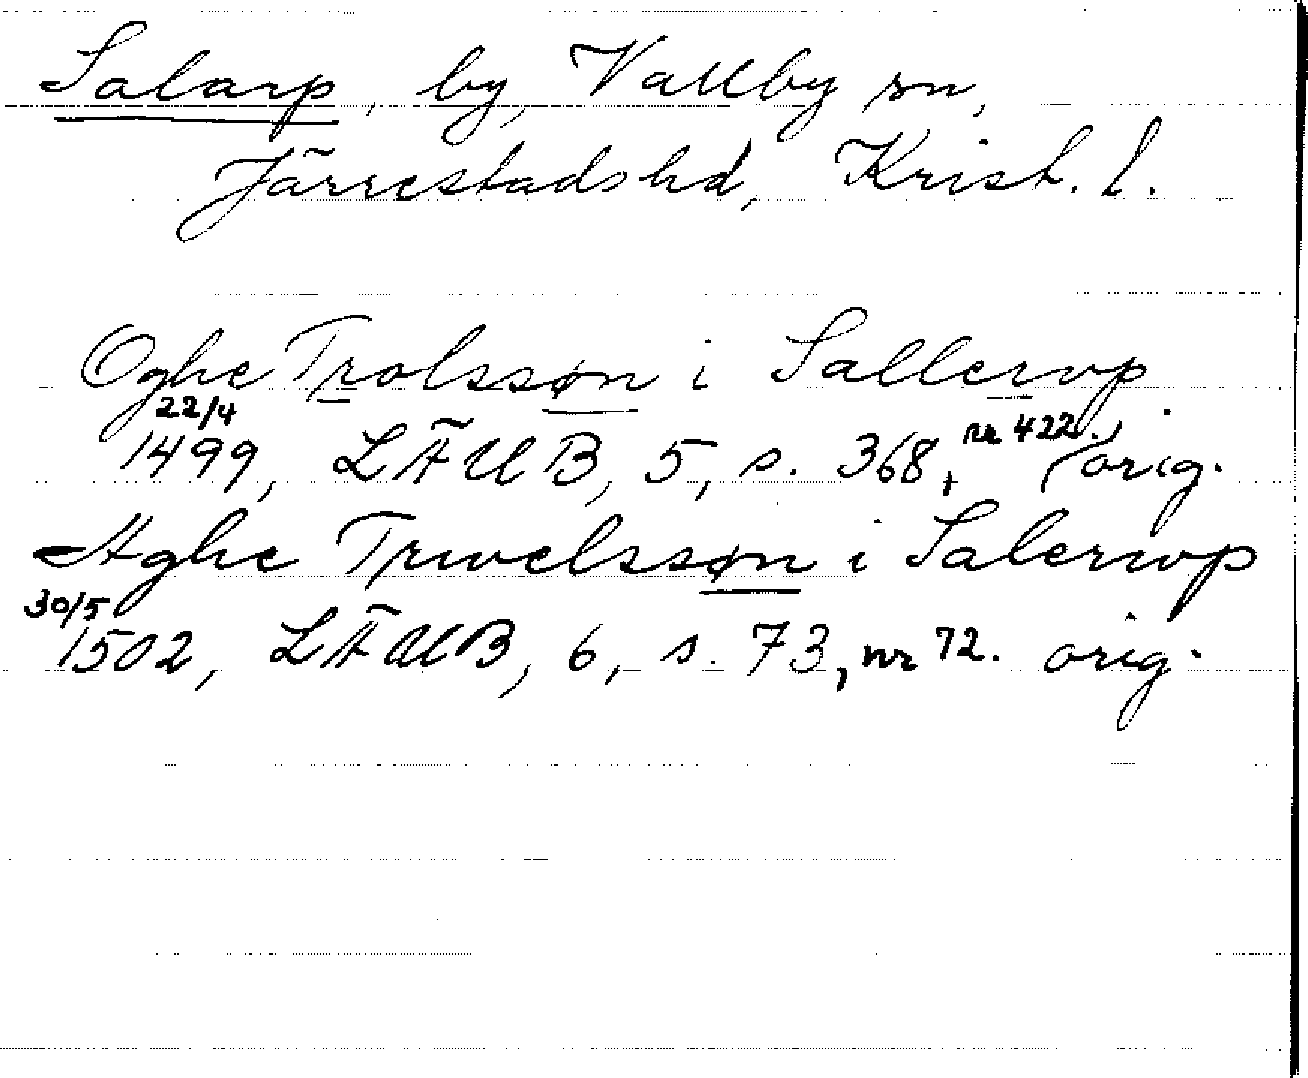 Salarp, by, Vallby sn,
Järrestads hd, Krist. l.
Oghe Trolssøn i Sallerop
22/4
1499, LÄUB, 5, s. 368, nr 422., orig.
Aghe Trwelssøn i Salerwp
30/5
1502, LÄUB, 6, s. 73, nr 72. orig.